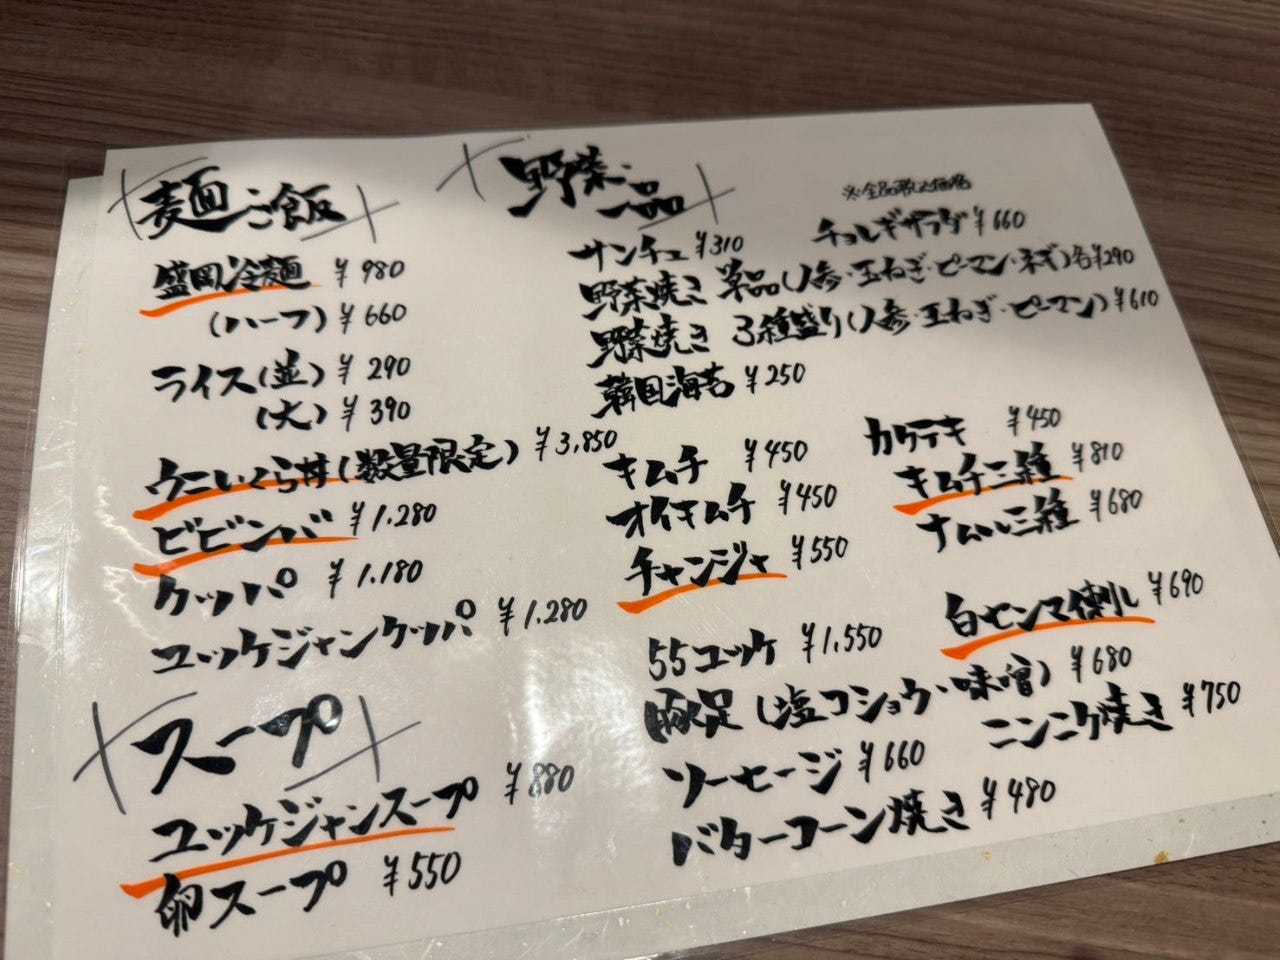 麺・ご飯
盛岡冷麺 ¥980
(ハーフ) ¥660
ライス(並) ¥290
(大) ¥390
ウニいくら丼(数量限定) ¥3,850
ビビンバ ¥1.280
クッパ ¥1.180
ユッケジャンクッパ ¥1.280
スープ
ユッケジャンスープ ¥880
卵スープ ¥550
野菜・一品
※全品税込価格
サンチュ ¥310
チョレギサラダ ¥660
野菜焼き 単品(人参・玉ねぎ・ピーマン・ネギ)各¥290
野菜焼き 3種盛り(人参・玉ねぎ・ピーマン)¥610
韓国海苔 ¥250
キムチ ¥450
カクテキ ¥450
オイキムチ ¥450
キムチ三種 ¥810
チャンジャ ¥550
ナムル三種 ¥680
55ユッケ ¥1,550
白センマイ刺し ¥690
豚足(塩コショウ・味噌) ¥680
ソーセージ ¥660
ニンニク焼き ¥750
バターコーン焼き ¥480